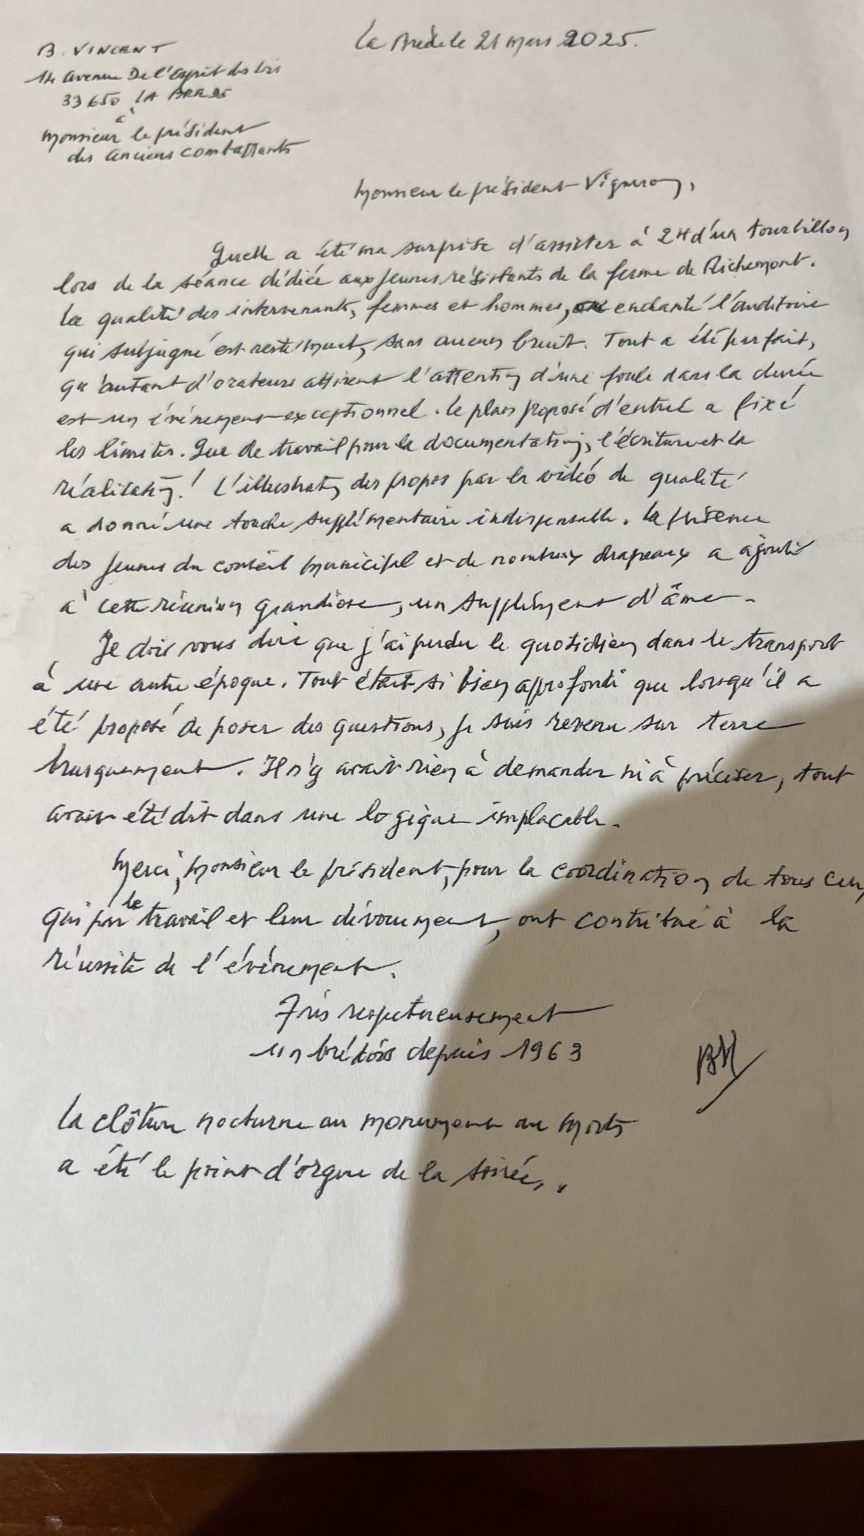 La Brède le 21 mars 2025.
B. VINCENT
14 avenue De l'Esprit des lois
33650 LA BREDE
à
Monsieur le président
des anciens combattants
Monsieur le président Vigneron,
Quelle a été ma surprise d'assister à 2H d'un tourbillon
lors de la séance dédiée aux jeunes résistants de la ferme de Richemont.
La qualité des intervenants, femmes et hommes, enchanté l'auditoire
qui subjugué est resté muet, sans aucun bruit. Tout a été parfait,
qu'autant d'orateurs attirent l'attention d'une foule dans la durée
est un événement exceptionnel. Le plan proposé d'entrée a fixé
les limites. Que de travail pour la documentation, l'écriture et la
réalisation! L'illustration des propos par la vidéo de qualité
a donné une touche supplémentaire indispensable. La présence
des jeunes du conseil municipal et de nombreux drapeaux a ajouté
à cette réunion grandiose, un supplément d'âme.
Je dois vous dire que j'ai perdu le quotidien dans le transport
à une autre époque. Tout était si bien approfondi que lorsqu'il a
été proposé de poser des questions, je suis revenu sur terre
brusquement. Il n'y avait rien à demander ni à préciser, tout
avait été dit dans une logique implacable.
Merci, Monsieur le président, pour la coordination de tous ceux,
qui par le travail et leur dévouement, ont contribué à la
réussite de l'événement.
Très respectueusement
un brédois depuis 1963
La clôture nocturne au monument aux morts
a été le point d'orgue de la soirée.